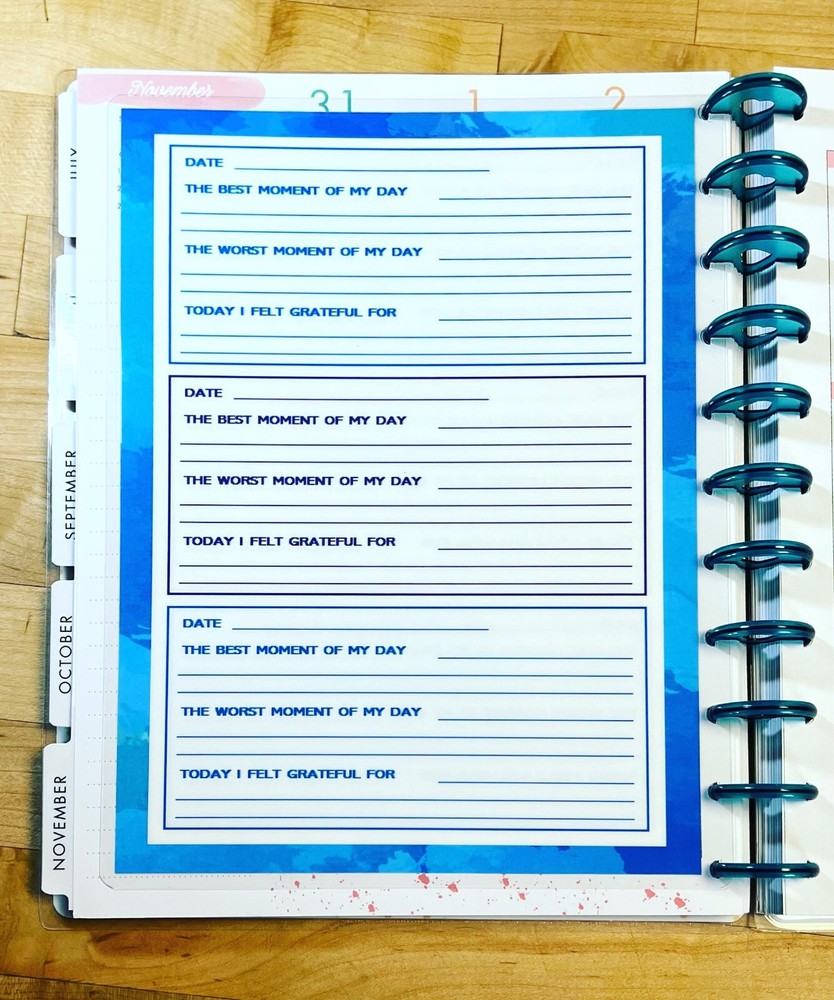 November
31 1 2
DATE
THE BEST MOMENT OF MY DAY
THE WORST MOMENT OF MY DAY
TODAY I FELT GRATEFUL FOR
DATE
THE BEST MOMENT OF MY DAY
THE WORST MOMENT OF MY DAY
TODAY I FELT GRATEFUL FOR
DATE
THE BEST MOMENT OF MY DAY
THE WORST MOMENT OF MY DAY
TODAY I FELT GRATEFUL FOR
SEPTEMBER
OCTOBER
NOVEMBER